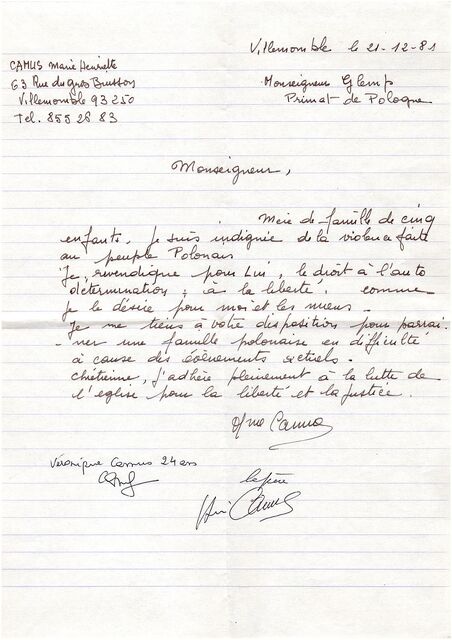 Villemomble le 21-12-81
CAMUS Marie Henriette
63 Rue du gros Buisson
Villemomble 93250
Tel. 855 28 83
Monseigneur Glemp
Primat de Pologne
Monseigneur,
Mère de famille de cinq
enfants, je suis indignée de la violence faite
au peuple Polonais
Je revendique pour Lui, le droit à l'auto
détermination, à la liberté. comme
je le désire pour moi et les miens.
Je me tiens à votre disposition pour parrai-
ner une famille polonaise en difficulté
à cause des évènements actuels.
Chrétienne, j'adhère pleinement à la lutte de
l'église pour la liberté et la justice.
Mme Camus
Véronique Camus 24 ans
le père
Camus